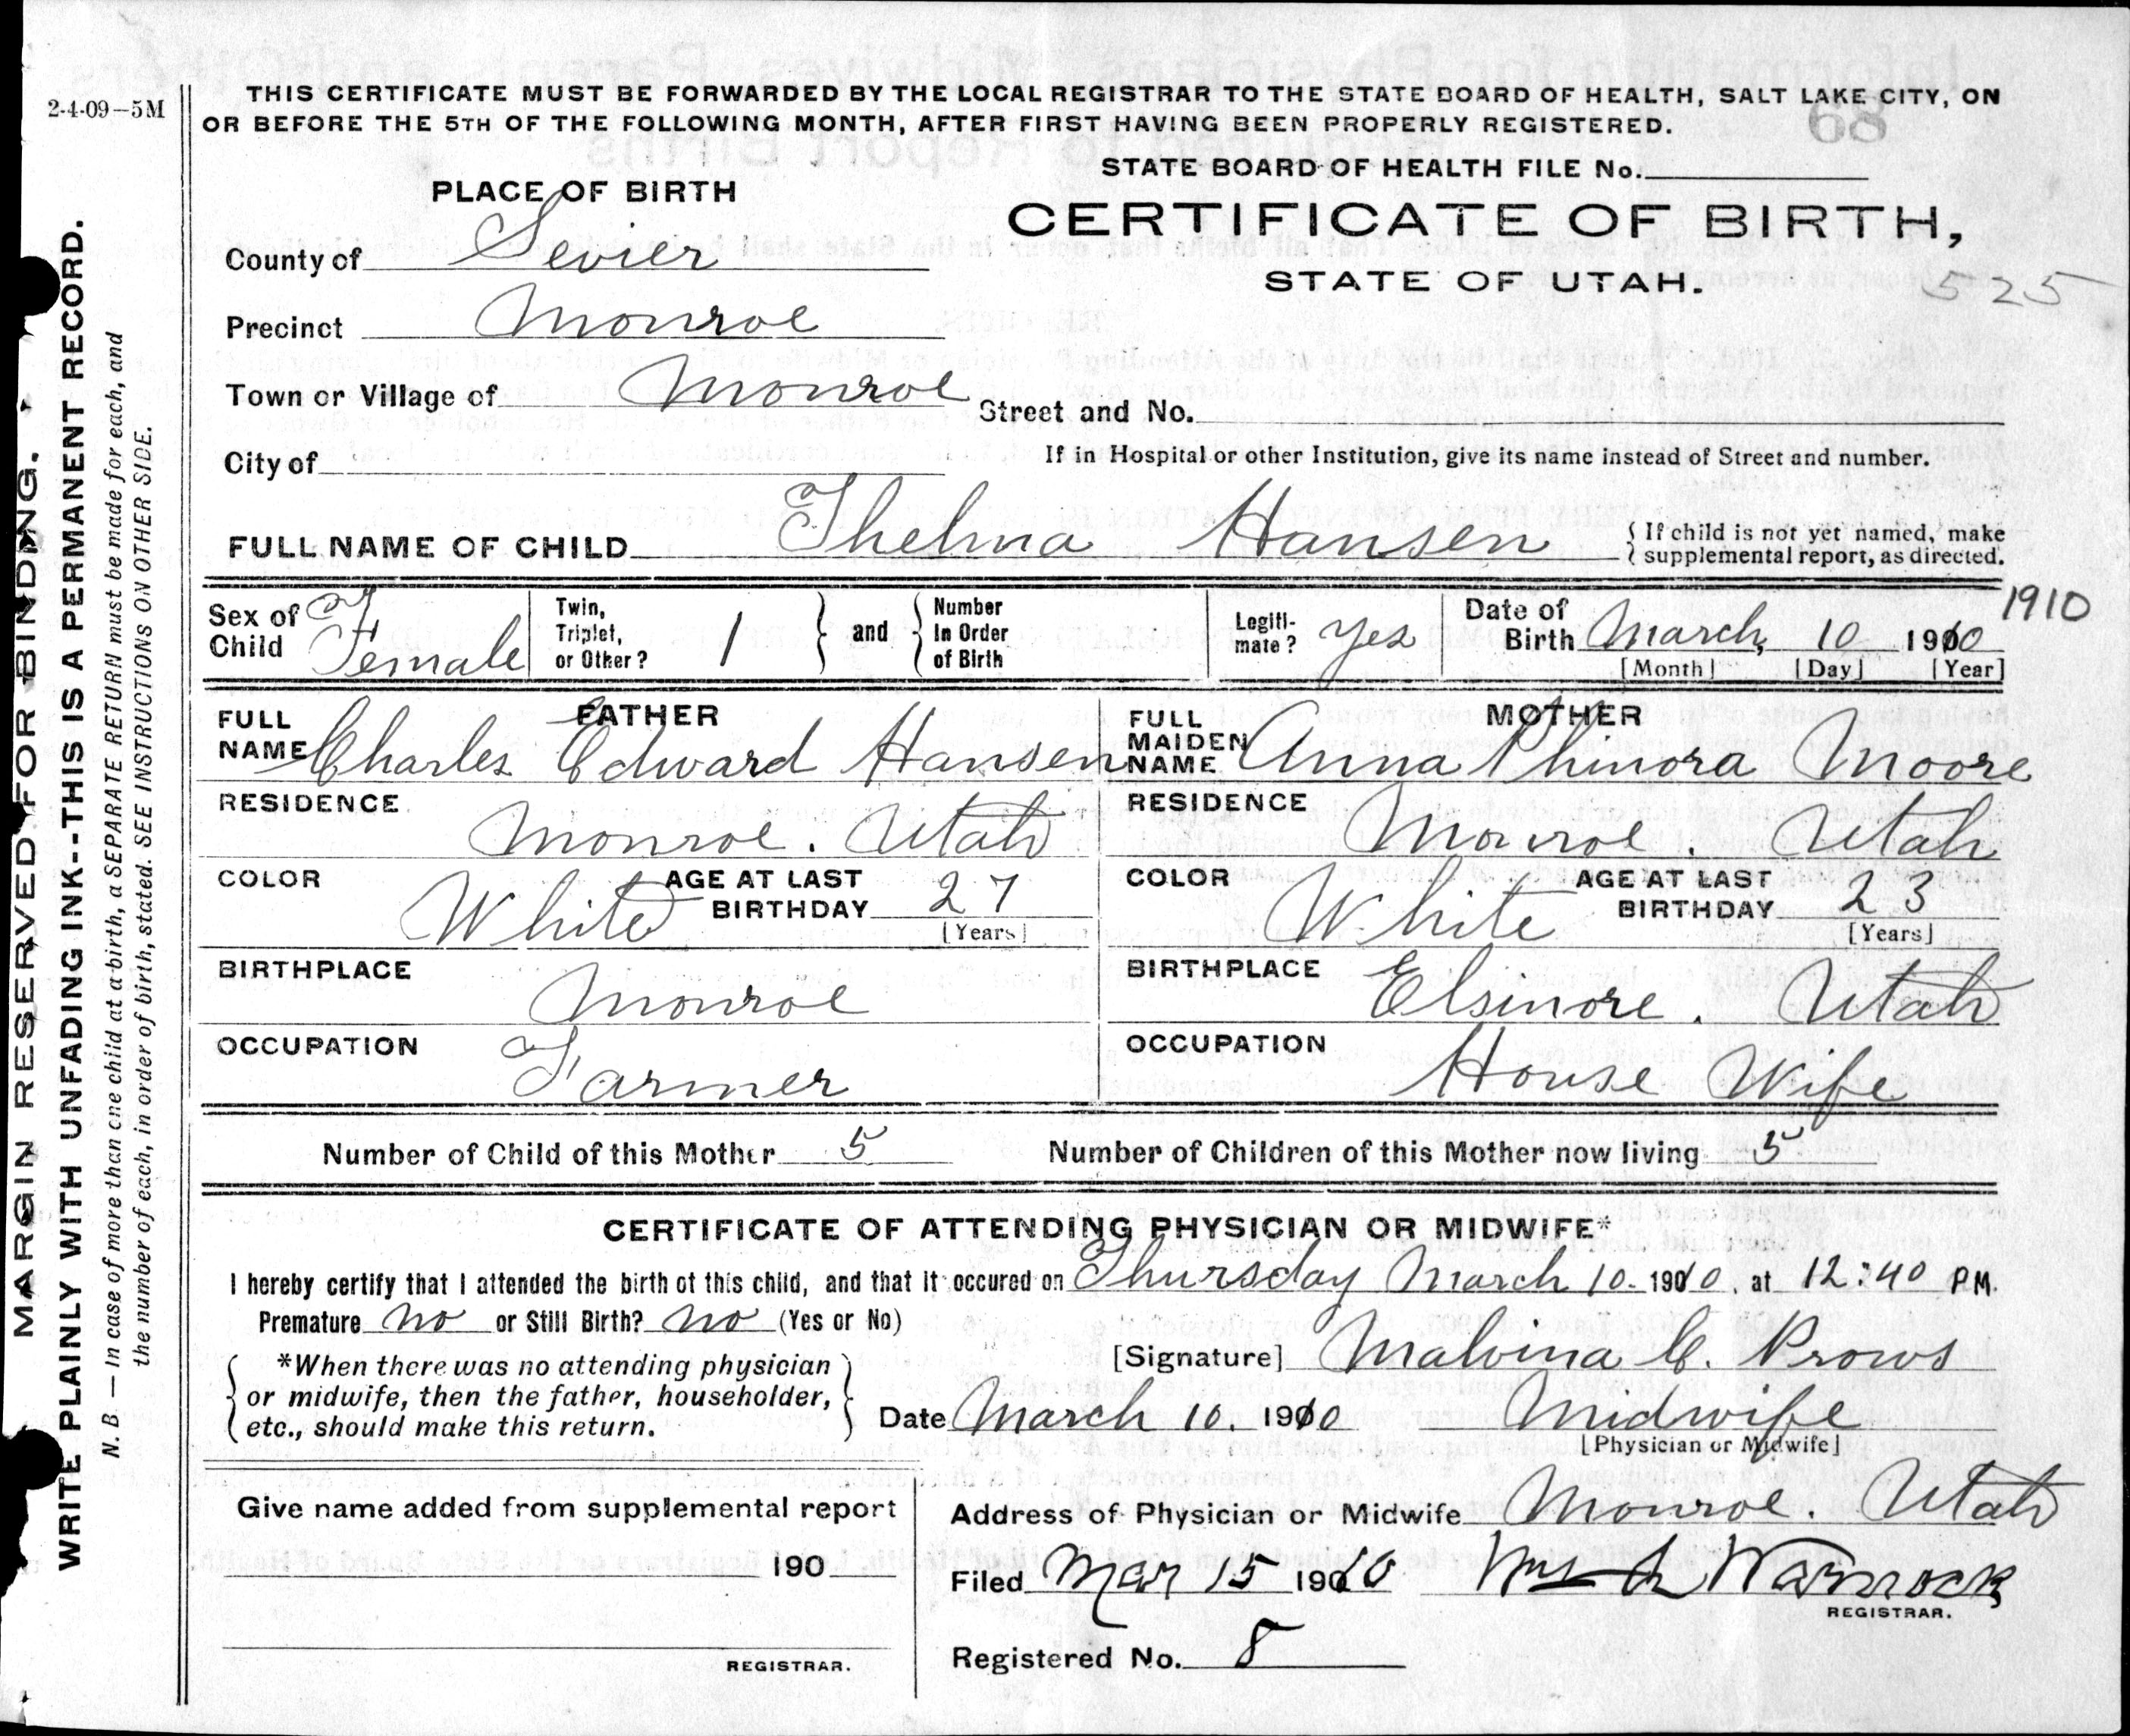 2-4-09–5M
THIS CERTIFICATE MUST BE FORWARDED BY THE LOCAL REGISTRAR TO THE STATE BOARD OF HEALTH, SALT LAKE CITY, ON
OR BEFORE THE 5TH OF THE FOLLOWING MONTH, AFTER FIRST HAVING BEEN PROPERLY REGISTERED.
68
STATE BOARD OF HEALTH FILE No.
PLACE OF BIRTH
CERTIFICATE OF BIRTH,
STATE OF UTAH.
525
County of Sevier
Precinct Monroe
Town or Village of Monroe
Street and No.
City of
If in Hospital or other Institution, give its name instead of Street and number.
FULL NAME OF CHILD Thelma Hansen
{ If child is not yet named, make
{ supplemental report, as directed.
Sex of Child Female
Twin, Triplet, or Other? 1 } and { Number In Order of Birth
Legiti-mate? Yes
Date of Birth March, 10 1910
1910
[Month] [Day] [Year]
FATHER
FULL NAME Charles Edward Hansen
RESIDENCE Monroe. Utah
COLOR White AGE AT LAST BIRTHDAY 27
[Years]
BIRTHPLACE Monroe
OCCUPATION Farmer
MOTHER
FULL MAIDEN NAME Anna Phinora Moore
RESIDENCE Monroe. Utah
COLOR White AGE AT LAST BIRTHDAY 23
[Years]
BIRTHPLACE Elsinore. Utah
OCCUPATION House Wife
Number of Child of this Mother 5 Number of Children of this Mother now living 5
CERTIFICATE OF ATTENDING PHYSICIAN OR MIDWIFE*
I hereby certify that I attended the birth of this child, and that it occured on Thursday March 10. 1910, at 12:40 P M.
Premature no or Still Birth? no (Yes or No)
*When there was no attending physician
or midwife, then the father, householder,
etc., should make this return.
[Signature] Malvina C. Prows
Date March 10. 1910 Midwife
[Physician or Midwife]
Give name added from supplemental report
190
REGISTRAR.
Address of Physician or Midwife Monroe. Utah
Filed Mar 15 1910 Wm L Warnock
REGISTRAR.
Registered No. 8
MARGIN RESERVED FOR BINDING.
WRITE PLAINLY WITH UNFADING INK--THIS IS A PERMANENT RECORD.
N. B — In case of more than one child at a birth, a SEPARATE RETURN must be made for each, and
the number of each, in order of birth, stated. SEE INSTRUCTIONS ON OTHER SIDE.